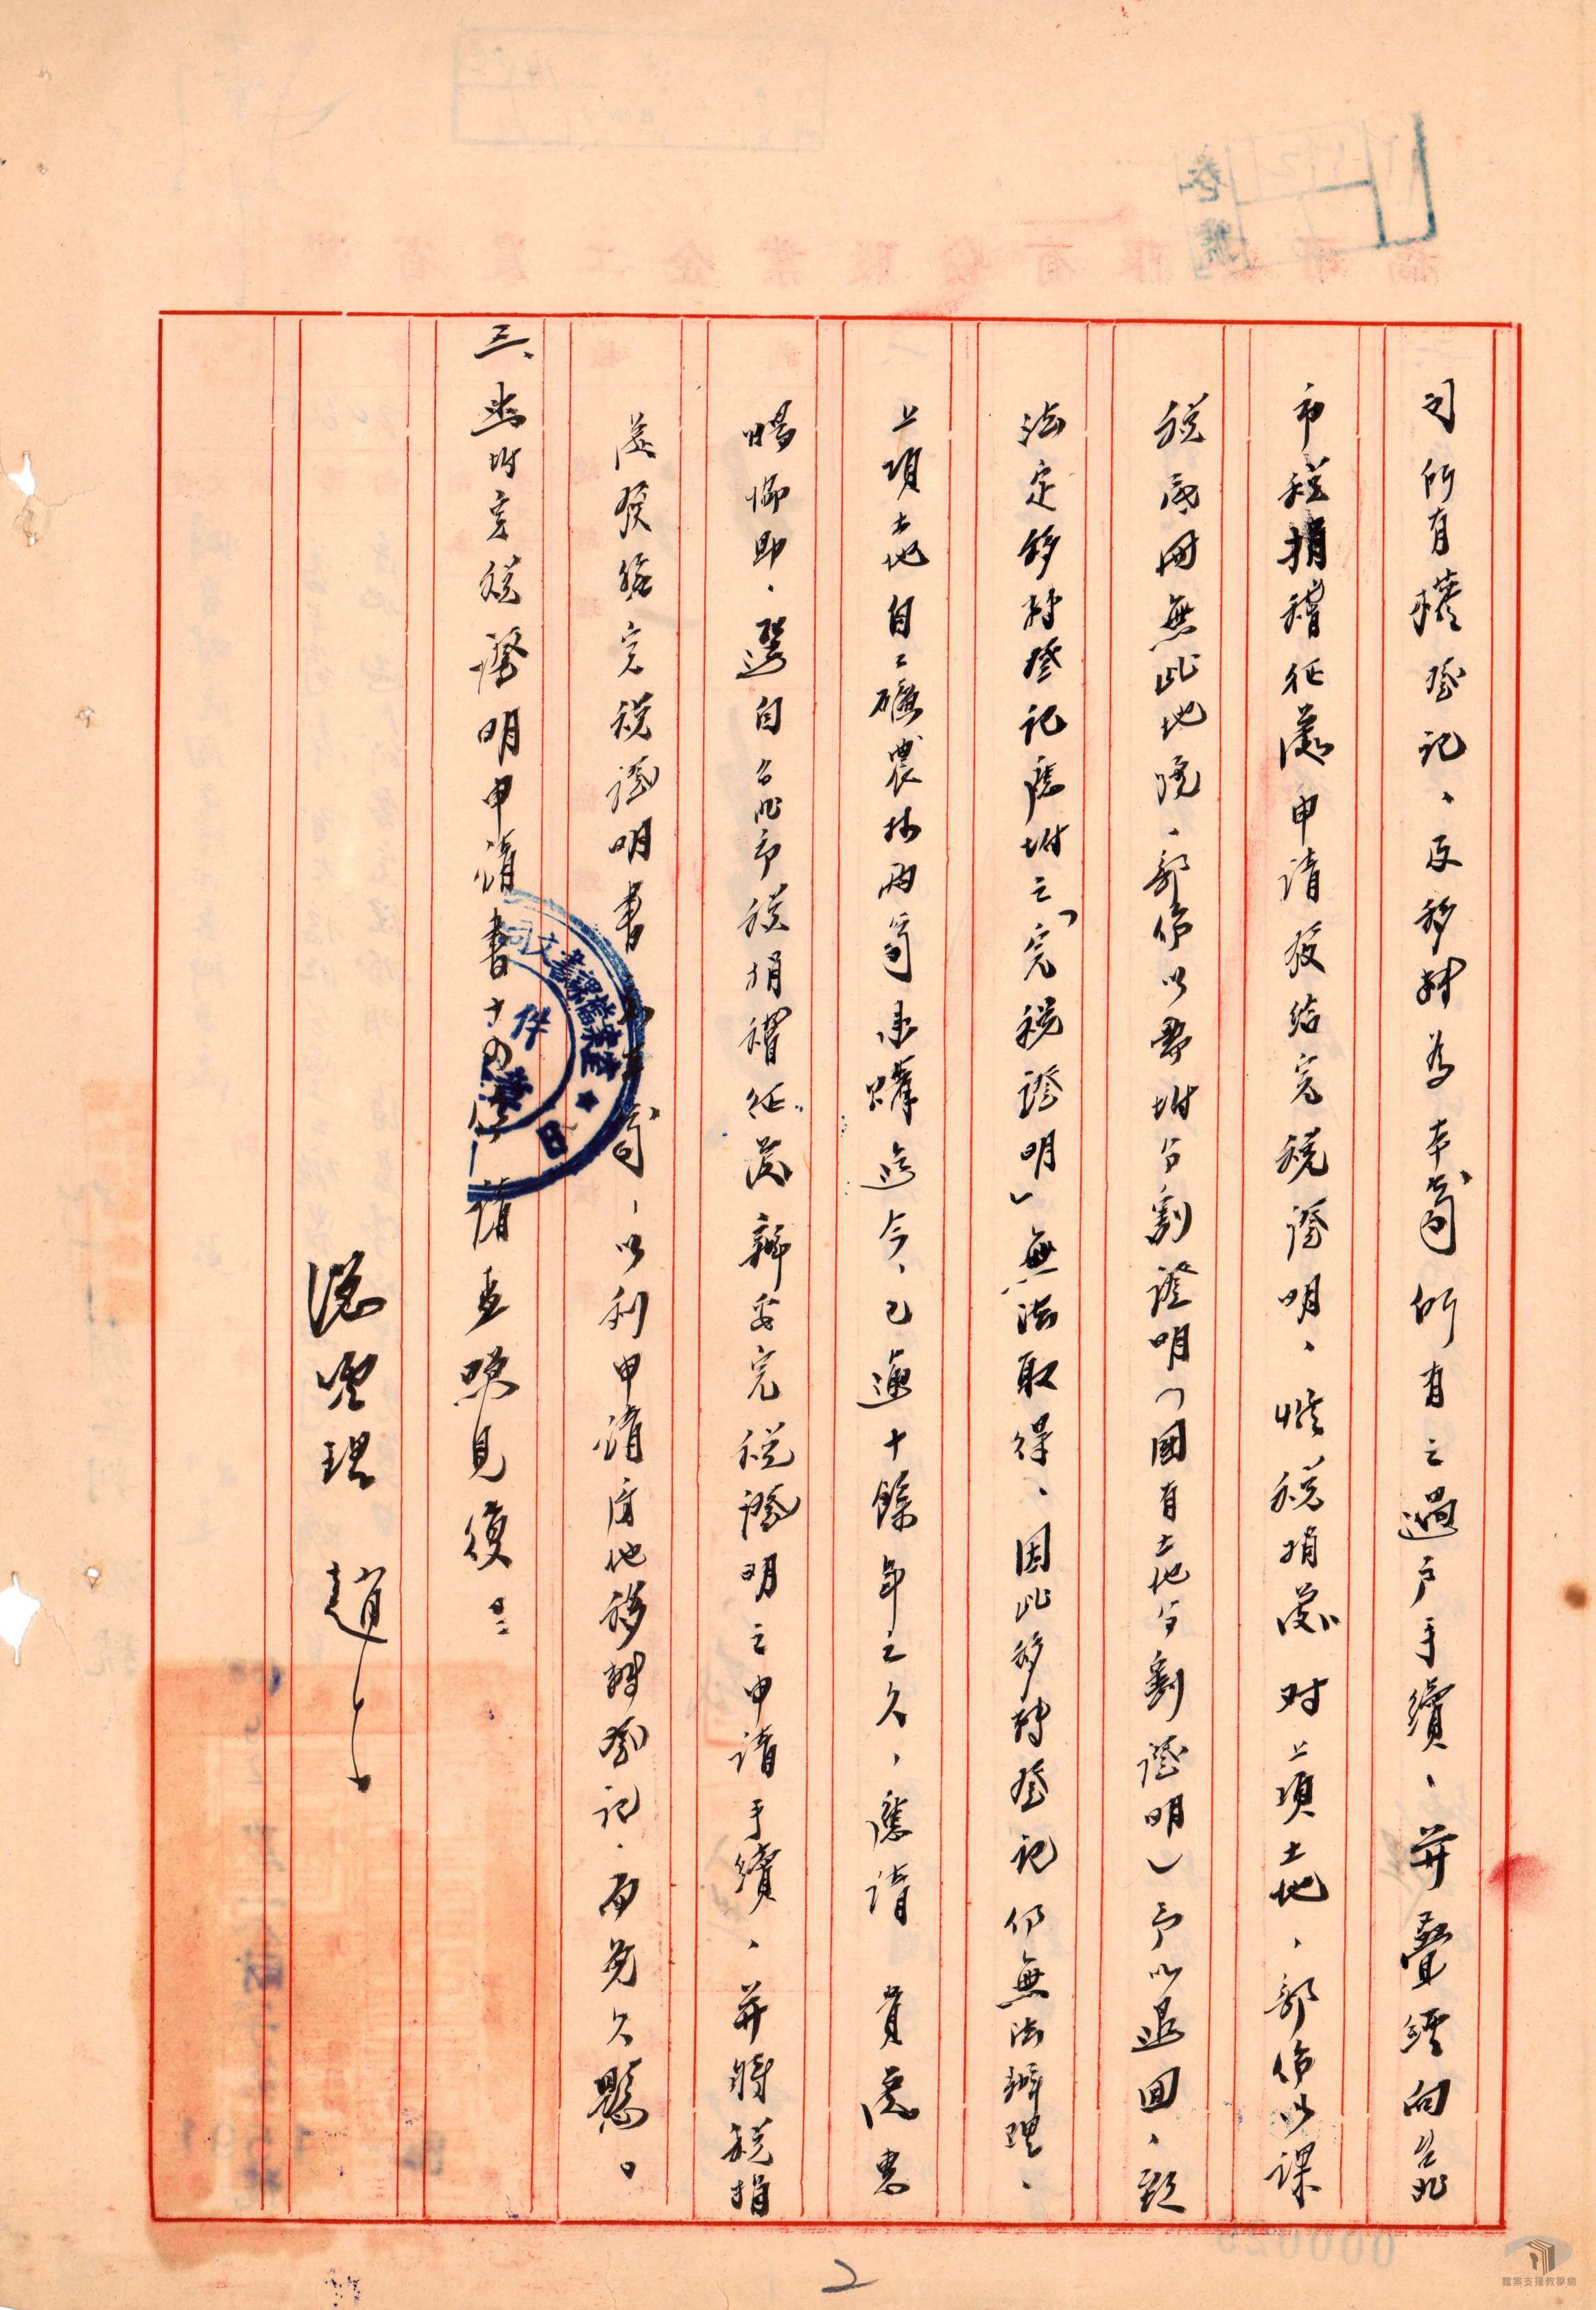 司所有權登記、及移轉為本公司所有之過戶手續、并疊經向台北
市稅捐稽征處申請發給完稅證明、惟稅捐處对上項土地、部份以課
稅底冊無此地號、部份以需附分割證明(國有土地分割證明)予以退回、致
法定移轉登記應附之「完稅證明」無法取得、因此移轉登記仍無法辦理、
上項土地自工礦農林兩公司承購迄今、已逾十餘年之久、應請 貴處惠
賜協助、逕自台北市稅捐稽征處辦妥完稅證明之申請手續、并將稅捐
處發給完稅證明書 司、以利申請房地移轉登記、而免久懸。
三、兹附完稅證明申請書十四份 請查照見復
總經理 趙
2
檔案支援教學網